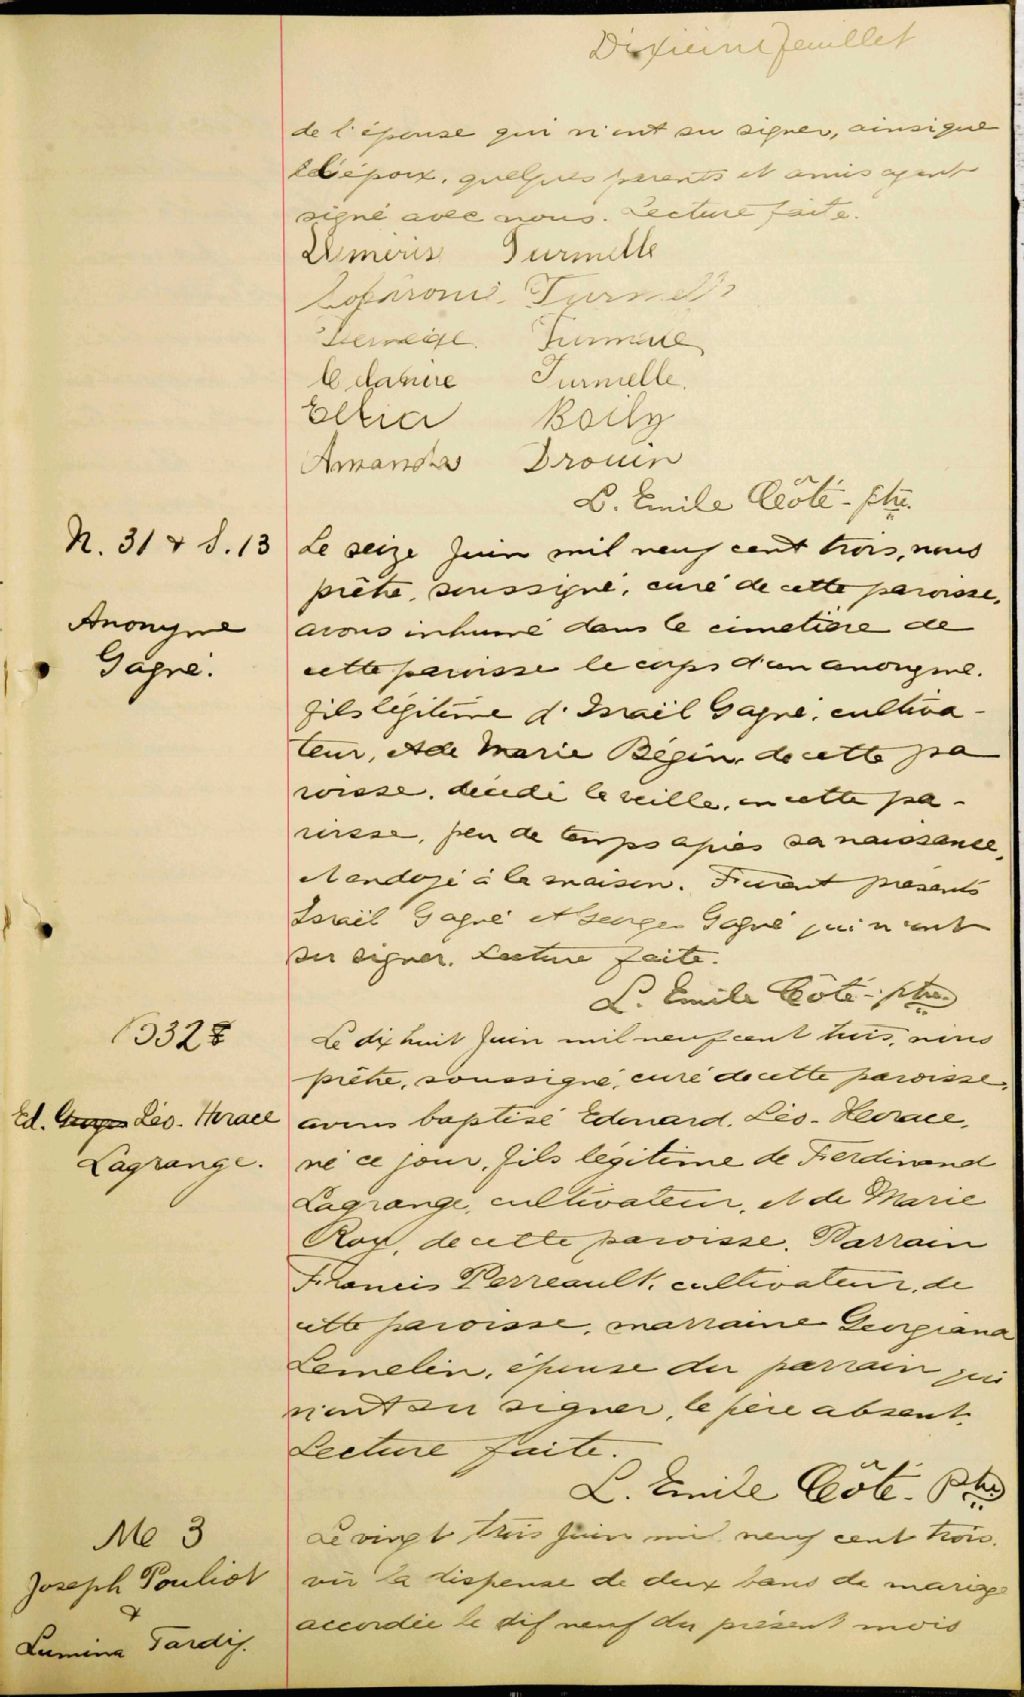 Dixième feuillet
de l'épouse qui n'ont su signer, ainsi que
l'époux, quelques parents et amis ayant
signé avec nous. Lecture faite.
Turmelle
Turmelle
Turmelle
Turmelle.
Boily
Amanda Drouin
L. Emile Côté - ptre.
N. 31 & S. 13
Anonyme
Gagné.
Le seize Juin mil neuf cent trois, nous
prêtre, soussigné, curé de cette paroisse,
avons inhumé dans le cimetière de
cette paroisse le corps d'un anonyme.
fils légitime d'Israël Gagné, cultiva-
teur, et de Marie Bégin, de cette pa
roisse, décédé la veille, en cette pa-
roisse, peu de temps après sa naissance,
et ondoyé à la maison. Furent présents
Israël Gagné et Georges Gagné qui n'ont
su signer. Lecture faite.
L. Emile Côté - ptre.
B 32
Ed. Georges Léo. Horace
Lagrange.
Le dix huit Juin mil neuf cent trois, nous
prêtre, soussigné, curé de cette paroisse,
avons baptisé Edouard. Léo. Horace,
né ce jour, fils légitime de Ferdinand
Lagrange, cultivateur, et de Marie
Roy, de cette paroisse. Parrain
Francis Perreault, cultivateur, de
cette paroisse, marraine Georgiana
Lemelin, épouse du parrain qui
n'ont su signer, le père absent.
Lecture faite.
L. Emile Côté - Ptre
Me 3
Joseph Pouliot
&
Lumina Tardif.
Le vingt trois Juin mil neuf cent trois.
vu la dispense de deux bans de mariage
accordée le dif neuf du présent mois